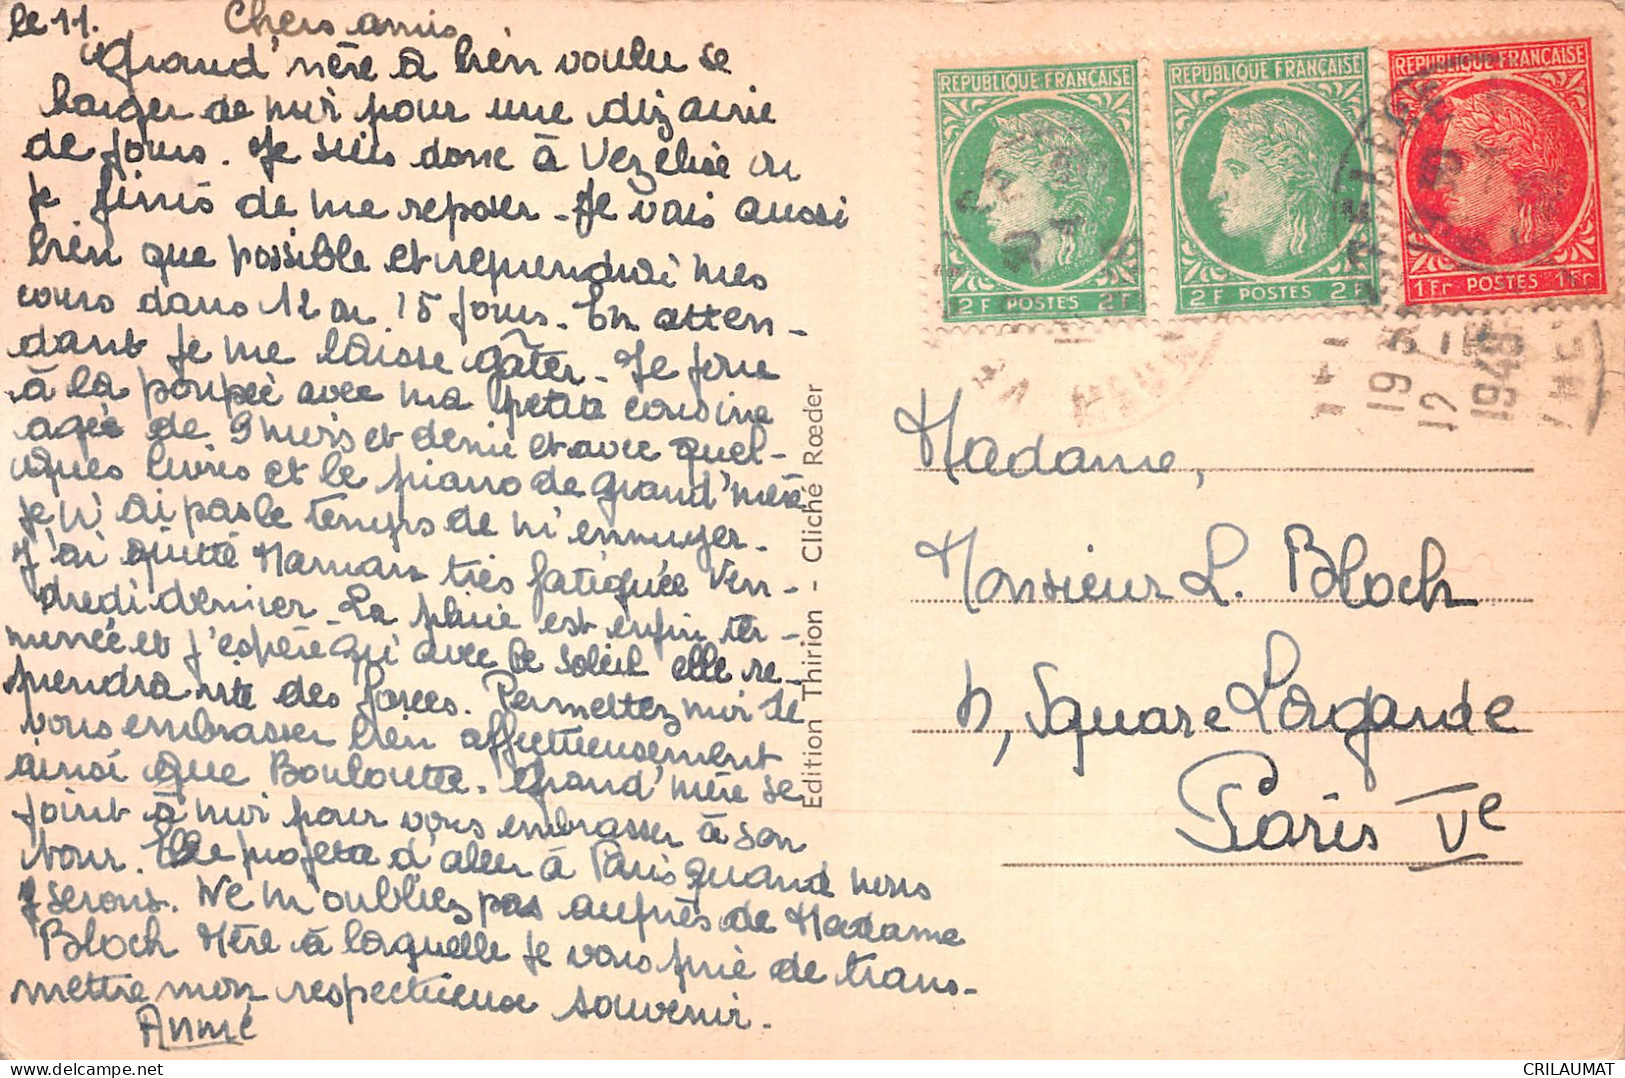 le 11. Chers amis
Grand'mère a bien voulu se
charger de moi pour une dizaine
de jours. Je suis donc à Vezelise où
je finis de me reposer - Je vais aussi
bien que possible et reprendrai mes
cours dans 12 ou 15 jours. En atten-
dant je me laisse gâter - Je joue
à la poupée avec ma petite cousine
agée de 9 mois et demi et avec quel-
ques livres et le piano de grand'mère
je n'ai pas le temps de m'ennuyer.
J'ai quitté Maman très fatiguée Ven-
dredi dernier. La pluie est enfin ter-
minée et j'espère qu'avec le soleil elle re-
prendra vite des forces. Permettez moi de
vous embrasser bien affectueusement
ainsi que Bouloutte. Grand'mère se
joint à moi pour vous embrasser à son
tour. Elle projeta d'aller à Paris quand nous
y serons. Ne m'oubliez pas auprès de Madame
Bloch Mère à laquelle je vous prie de trans-
mettre mon respectueux souvenir.
Anne
Edition Thirion - Cliché Rœder
REPUBLIQUE FRANÇAISE
2F POSTES 2F
REPUBLIQUE FRANÇAISE
2F POSTES 2F
REPUBLIQUE FRANÇAISE
1Fr POSTES 1Fr
19
12
1948
Madame,
Monsieur L. Bloch
Square Lagarde
Paris Ve
CRILAUMAT